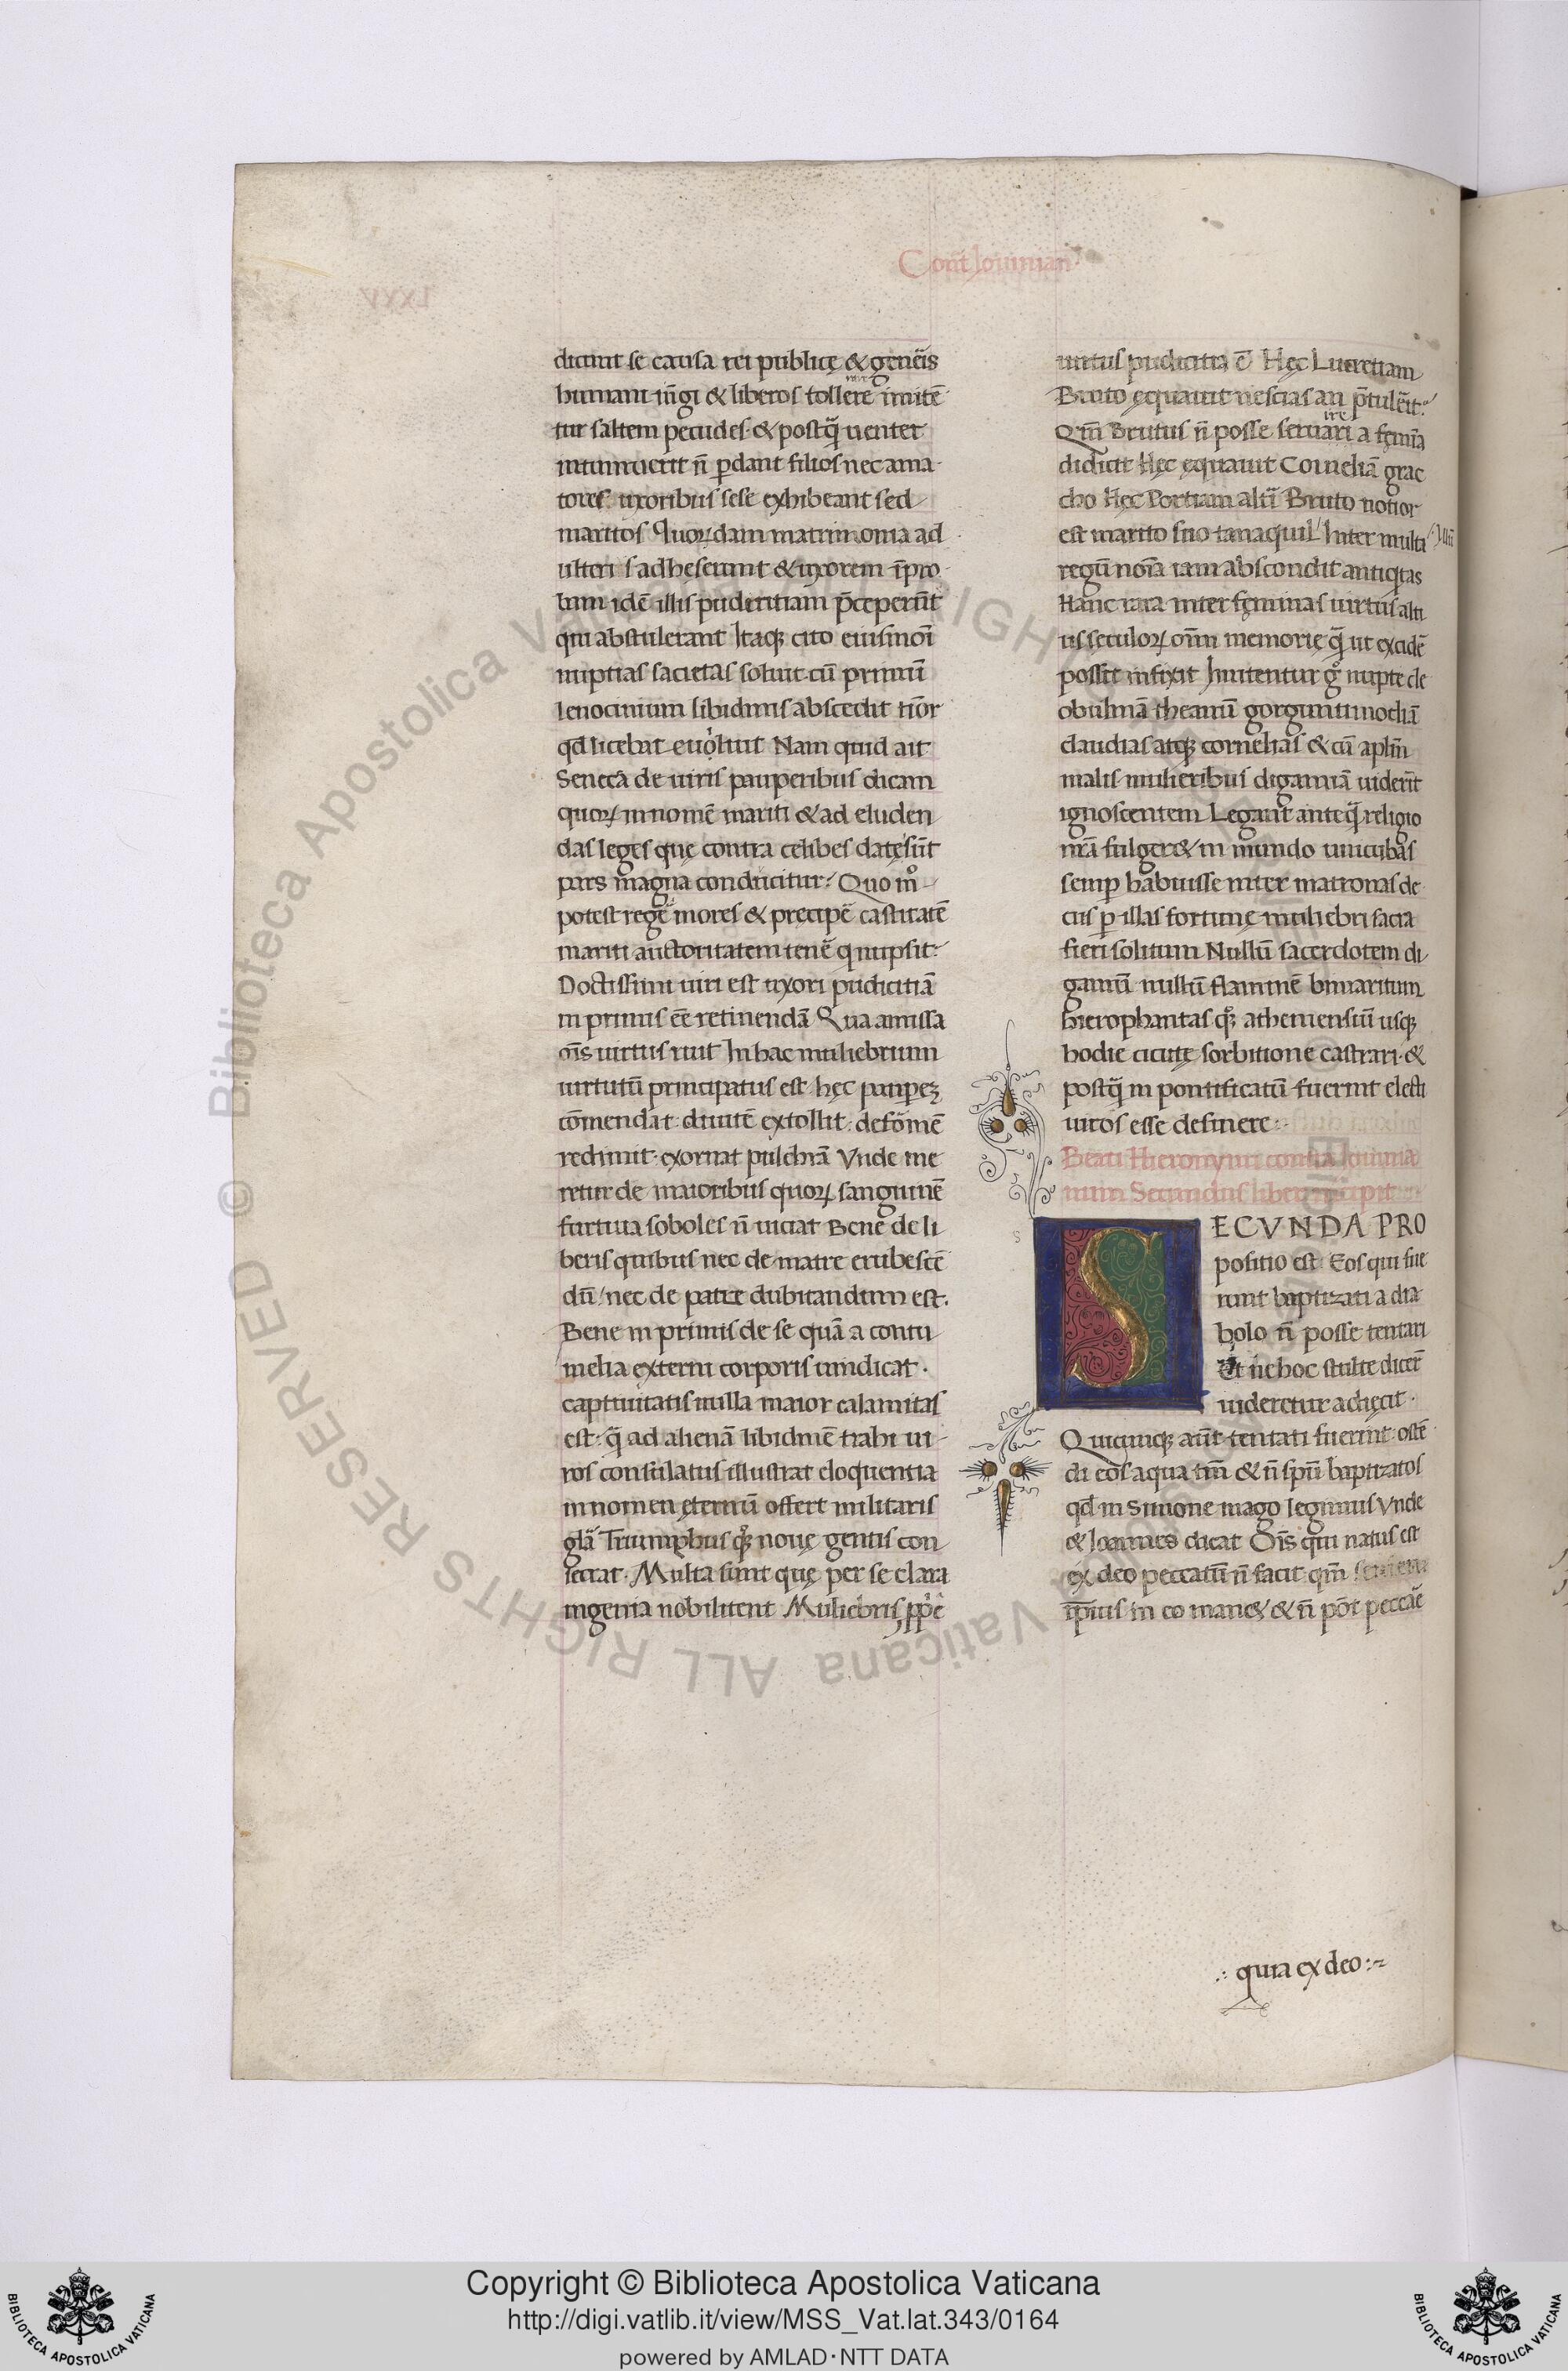 Cont̃ Iouinian̄
LXXV
dicunt se causa rei publicę & genẽis
humani iũgi & liberos tollere imitẽ
tur saltem pecudes & postq̃ uenter
intumuerit ñ ꝑdant filios nec ama
tores uxoribus sese exhibeant sed
maritos Quoꝝdam matrimonia ad
ulteri s adheserunt & uxorem ĩpro
bam idẽ illis pudicitiam p̃ceperũt
qui abstulerant Itaqꝫ cito eiusmõi
nuptias sacietas soluit cũ primũ
lenocinium libidinis abscedit tĩor
qd̃ licebat euoluit Nam quid ait
Seneca de uiris pauperibus dicam
quoꝝ in nomẽ mariti & ad eluden
das leges quę contra celibes datę sũt
pars magna conducitur? Quo mº
potest regẽ mores & precipẽ castitatẽ
mariti auctoritatem tenẽ q nupsit?
Doctissimi uiri est uxori pudicitiã
in primis eẽ retinendã Qua amissa
oĩs uirtus ruit In hac muliebrium
uirtutũ principatus est hęc pauperẽ
cõmendat diuitẽ extollit defõmẽ
redimit exornat pulchrã Vnde me
retur de maioribus quoꝝ sanguinẽ
furtiua soboles ñ uiciat Bene de li
beris quibus nec de matre erubescẽ
dũ nec de patre dubitandum est.
Bene in primis de se quã a contu
melia externi corporis uindicat.
captiuitatis nulla maior calamitas
est q̃ ad alienã libidinẽ trahi ui
ros consulatus illustrat eloquentia
in nomen ęternũ offert militaris
glã Triumphus qꝫ nouę gentis con
secrat. Multa sunt quę per se clara
ingenia nobilitent Muliebris ꝓpẽ
uirtus pudicitia ẽ Hęc Lucretiam
Bruto ęquauit nescias an p̃tulẽit.
Qm̃ Brutus ñ posse seruari a femĩa
didicit Hęc ęquauit Corneliã grac
cho Hęc Portiam altũ Bruto notior
est marito suo tanaquil Inter multa
regũ noĩa iam abscondit antiqͥtas
Hanc rara inter feminas uirtus alti
us seculoꝝ oĩm memorię q̃ ut excidẽ
possit infixit Imitentur gº nupte de
obulmã theanũ gorguntimocliã
claudias atqꝫ cornelias & cũ aplm̃
malis mulieribus digamiã uiderĩt
ignoscentem Legant anteq̃ religio
nrã fulger& in mundo unicubas
semꝑ habuisse inter matronas de
cus ꝑ illas fortunę muliebri sacra
fieri solitum Nullũ sacerdotem di
gamũ nullũ flaminẽ bimaritum
hierophantas qꝫ atheniensiũ usqꝫ
hodie cicutę sorbitione castrari &
postq̃ in pontificatũ fuerint electi
uiros esse desinere:
Beati Hieronymi contra Iouinia
num Secundus liber incipit
SECVNDA PRO
positio est Eos qui fue
runt baptizati a dia
bolo ñ posse tentari
Et ne hoc stulte dicer̃
uideretur adięcit.
Quicunqꝫ aũt tentati fuerint ostẽ
di eos aqua tm̃ & ñ spũ baptizatos
qd̃ in Simone mago legimus Vnde
& Ioannes dicat Oĩs qui natus est
ex deo peccatũ ñ facit qm̃ semen
ip̃ius in eo man& & ñ põt peccãe
quia ex deo:~
Copyright © Biblioteca Apostolica Vaticana
http://digi.vatlib.it/view/MSS_Vat.lat.343/0164
powered by AMLAD·NTT DATA